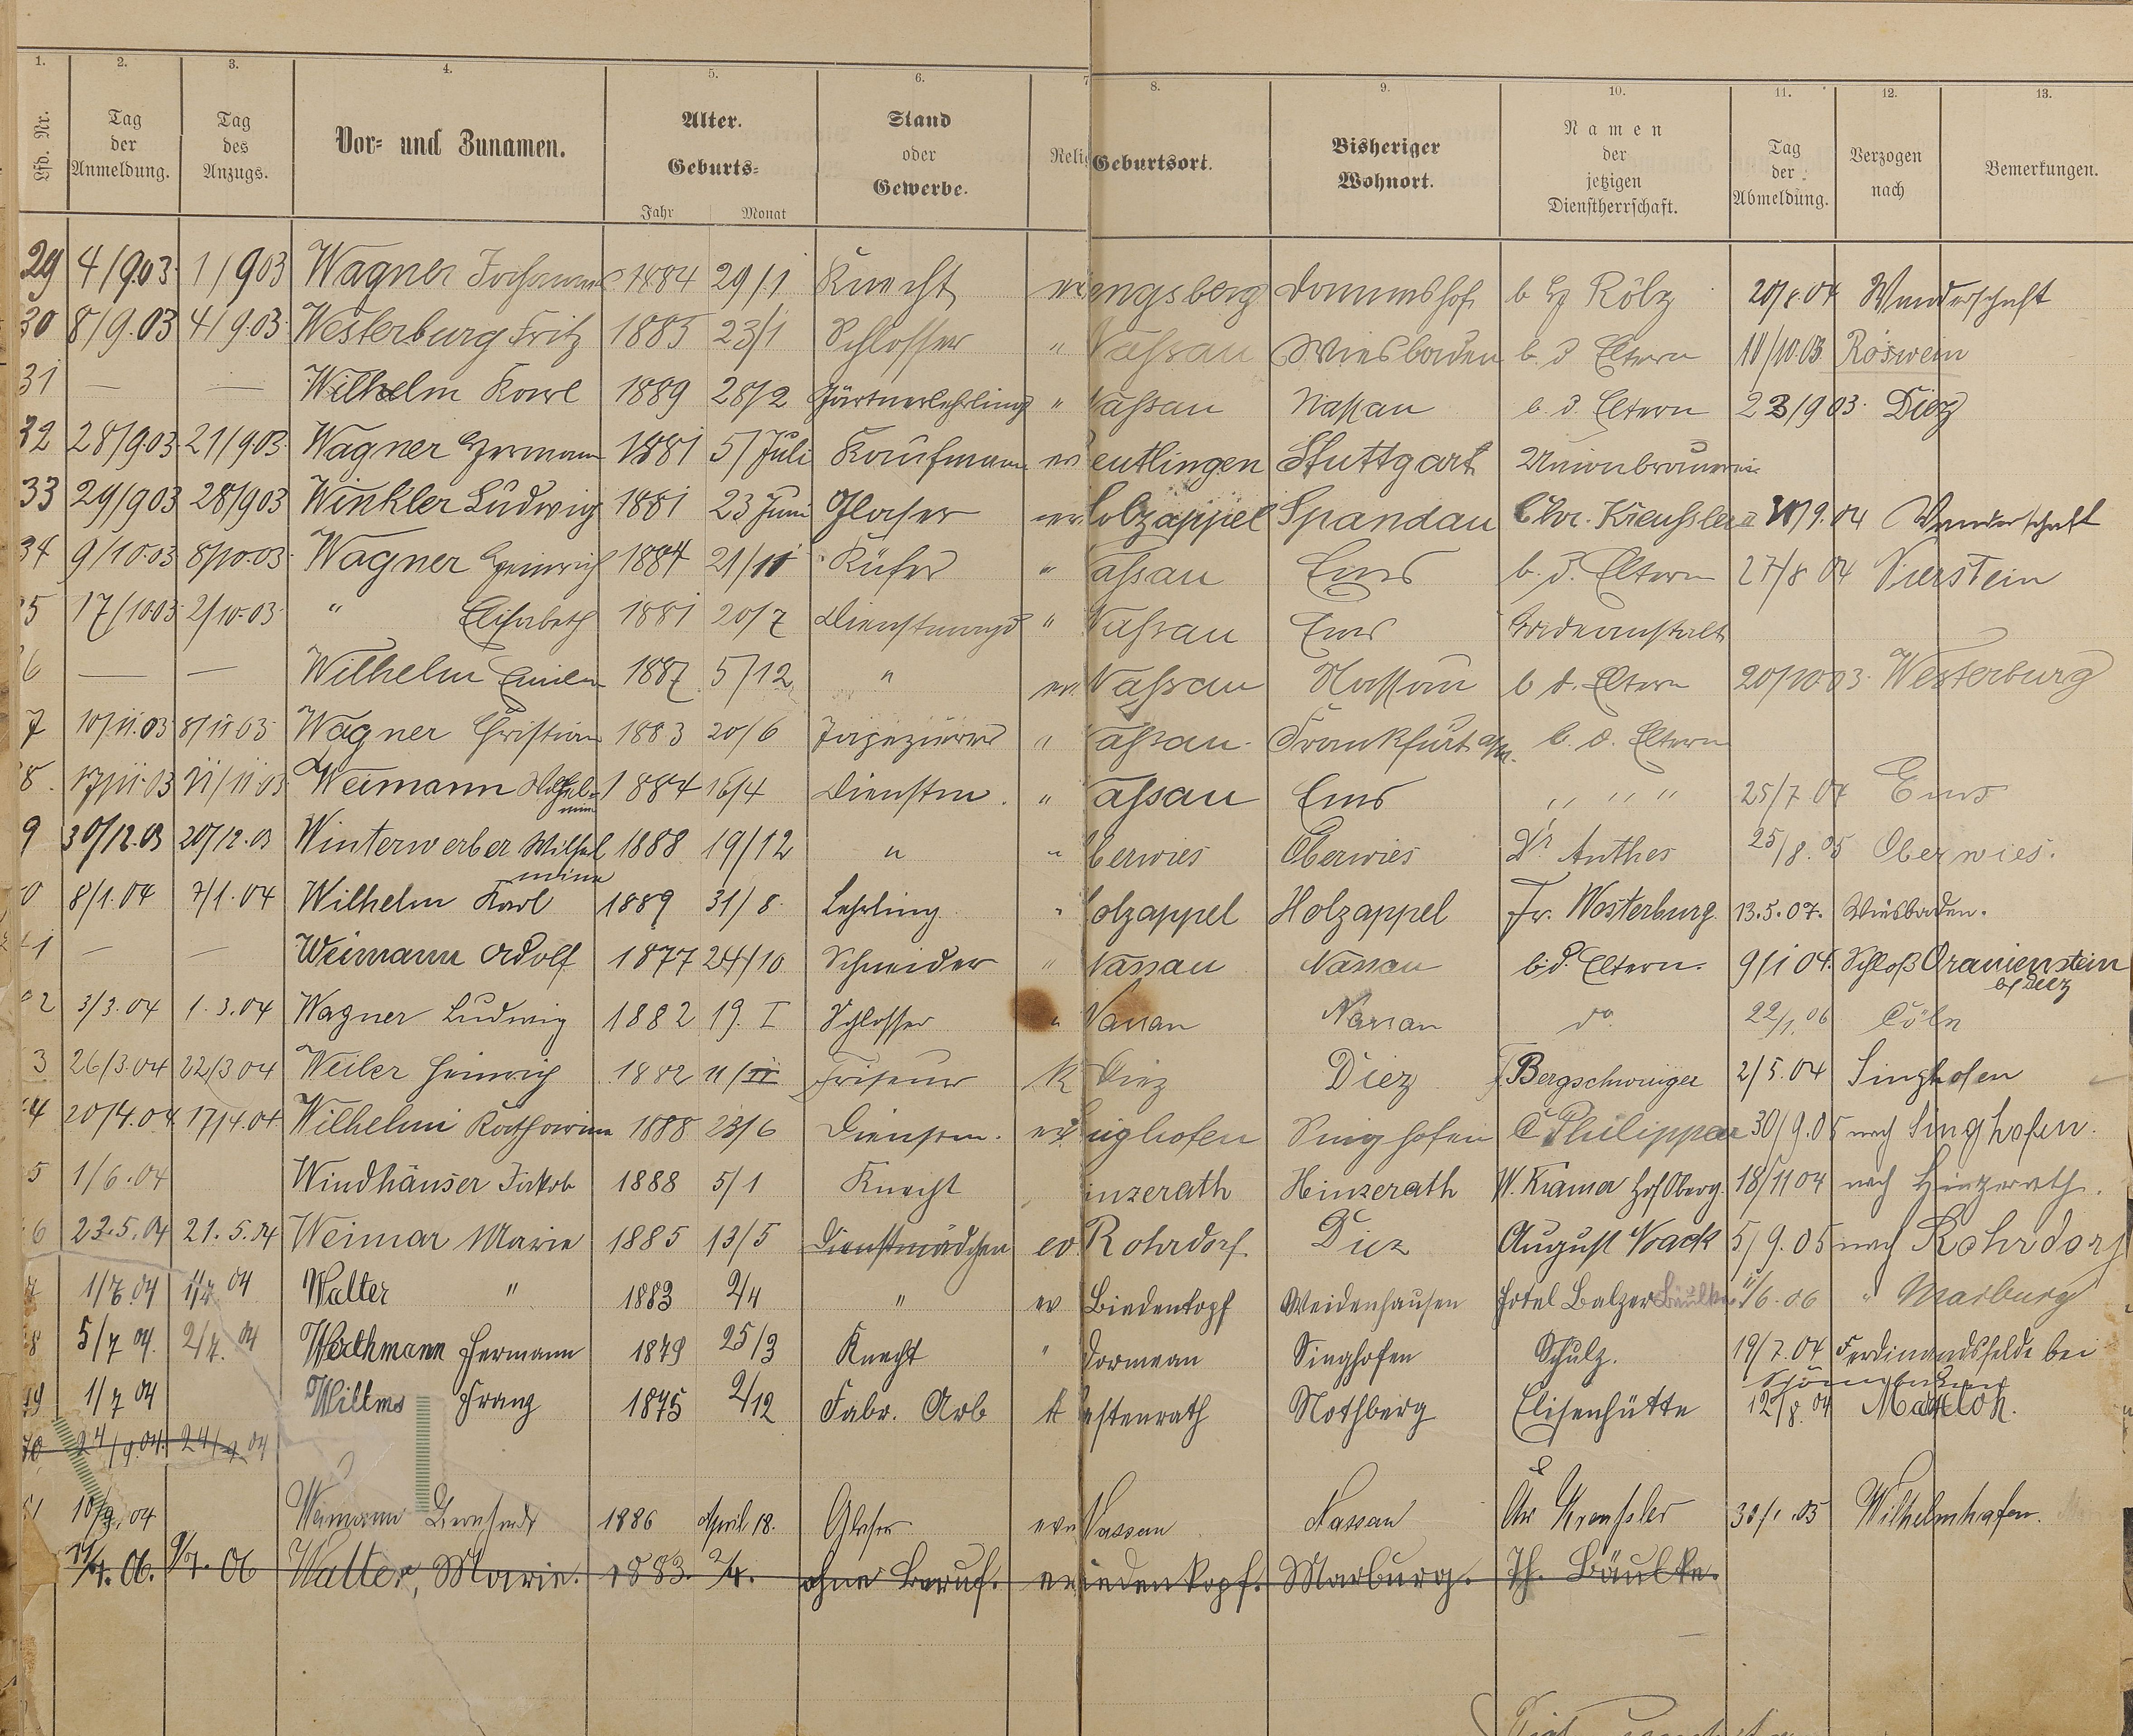 1. 2. 3. 4. 5. 6. 7 8. 9. 10. 11. 12. 13.
Lfd. Nr. Tag der Anmeldung. Tag des Anzugs. Vor- und Zunamen. Alter. Geburts- Jahr Monat Stand oder Gewerbe. Relig Geburtsort. Bisheriger Wohnort. Namen der jetzigen Dienstherrschaft. Tag der Abmeldung. Verzogen nach Bemerkungen.
29 4/9.03 1/903 Wagner 1884 29/1 Knecht engsberg Dommshof b Rölz 20/8.04 Wanderschaft
30 8/9.03 4/9.03 Westerburg Fritz 1885 23/1 Schlosser " Nassau Wiesbaden b. d Eltern 11/10.03 Röswein
31 — — Wilhelm Karl 1889 28/2 Gärtnerlehrling " Nassau Nassau b. d. Eltern 23/903. Diez
32 28/9.03 21/9.03. Wagner Hermann 1881 5/Juli Kaufmann ev eutlingen Stuttgart Unionbrauerei
33 29/903 28/903 Winkler Ludwig 1881 23 Juni Glaser ev. Holzappel Spandau Chr. Kreussler /9.04 Wanderschaft
34 9/10.03 8/10.03. Wagner Heinrich 1884 21/11 Küfer " assau Ems b. d. Eltern 27/8 04 Vierstein
5 17/10.03 2/10.03. " Elisabeth 1881 20/7 Dienstmagd " Nassau Ems Badeanstalt
6 — — Wilhelm 1887 5/12 " ev. Nassau Nassau b d. Eltern 20/10.03. Westerburg
7 10/11.03 8/11 03 Wagner Christian 1883 20/6 Tapezierer " assau. Frankfurt a/M. b. d. Eltern
8. 17/11.03 11/11.03 Weimann Wilhel=
mine 1884 16/4 Dienstm. " assau Ems " " " 25/7 04 Ems
9 30/12.03 20/12.03 Winterwerber Wilhel
mine 1888 19/12 " " berwies Oberwies Dr Anthes 25/8.05 Oberwies.
0 8/1.04 7/1.04 Wilhelm Karl 1889 31/8. Lehrling " olzappel Holzappel Fr. Westerburg. 13.5.07. Wiesbaden.
1 — — Weimann Adolf 1877 24/10 Schneider " Nassau Nassau b. d. Eltern. 9/1 04. Schloß Oranienstein
b/ Diez
2 3/3.04 1.3.04 Wagner Ludwig 1882 19. I Schlosser " Nassau Nassau do. 22/1.06 Cöln
3 26/3.04 22/3 04 Weiler Heinrich 1882 11/II Friseur K Diez Diez Bergschwinger 2/5.04 Singhofen
4 20/4.04. 17/4.04. Wilhelmi Katharina 1888 23/6 Dienstm. ev. inghofen Singhofen C Philippar 30/9.05 nach Singhofen.
5 1/6.04 Windhäuser Jakob 1888 5/1 Knecht inzerath Hinzerath W. Kramer Hof Oberg. 18/11 04 nach Hinzerath.
6 23.5.04 21.5.04 Weimar Marie 1885 13/5 Dienstmädchen ev Rohrdorf Diez August Noack 5/9.05 nach Rohrdorf
1/7.04 1/7 04 Walter " 1883 2/4 " ev Biedenkopf Weidenhausen Hotel Balzer Bäulke 11/6.06 " Marburg
8 5/7 04. 2/7. 04 Werthmann Hermann 1879 25/3 Knecht " Dornean Singhofen Schulz. 19/7.04 Ferdinandsfelde bei
49 1/7 04 Willms Franz 1875 2/12 Fabr. Arb K astenrath Nothberg Elisenhütte 12/8.04 Marxloh.
24/9.04. 24/9.04
51 10/9.04 Weimann Bernhard 1886 April 18. Glaser Nassau Nassau Chr Kreussler 30/1.05 Wilhelmhafen.
/7.06. 9/7.06 Walter, Marie. 1883. 2/4. ohne Beruf. ev iedenkopf. Marburg. Th. Bäulke.